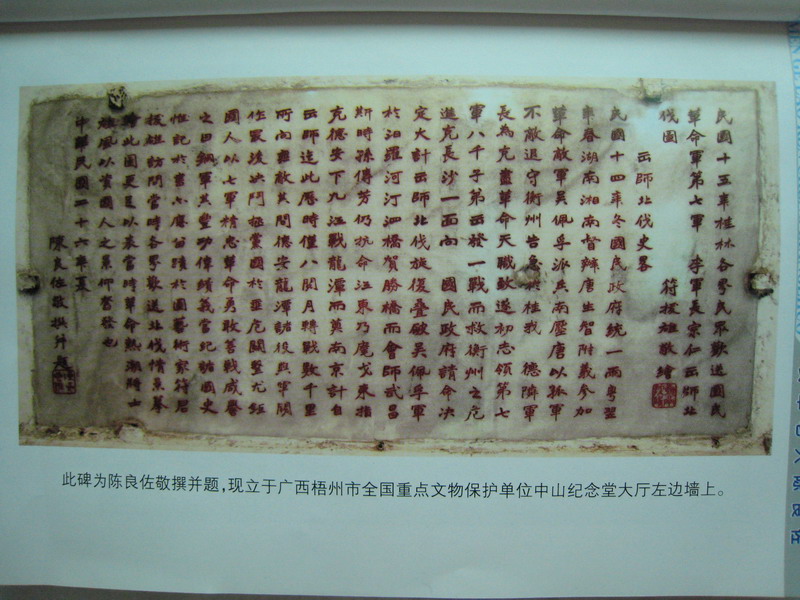 民國十五年桂林各界民眾歡送國民
革命軍第七軍 李軍長宗仁出師北
伐圖 符援雄敬繪
出師北伐史畧
民國十四年冬國民政府統一兩粤翌
年春湖南湘南督辦唐生智附義參加
革命敵軍吳佩孚派兵南壓唐以孤軍
不敵退守衡州告急於桂我 德隣軍
長為克盡革命天職 遂初志領第七
軍八千子弟出發一戰而救衡州之危
進克長沙一面向 國民政府請命决
定大計出師北伐旋復疊破吳佩孚軍
於汨羅河汀泗橋賀勝橋而會師武昌
斯時孫傳芳仍抗命江東乃麾戈東指
克德安下九江戰龍潭而奠南京計自
出師迄此歷時僅八閱月轉戰數千里
所向無敵其間德安龍潭諸役與軍閥
作最後决鬥拯黨國於垂危關繫尤鉅
國人以七軍精忠革命勇敢善戰咸譽
之曰鋼軍其豐功偉績義當紀諸國史
惟記於書不廣公蹟於圖藝術家符君
援雄訪問當時各界歡送北伐情景摹
繪此圖更足以表當時革命熱潮將士
雄風以資國人之景仰督啓也
中華民國二十六年夏
陳良佐敬撰并題
此碑为陈良佐敬撰并题,现立于广西梧州市全国重点文物保护单位中山纪念堂大厅左边墙上。
陈良佐